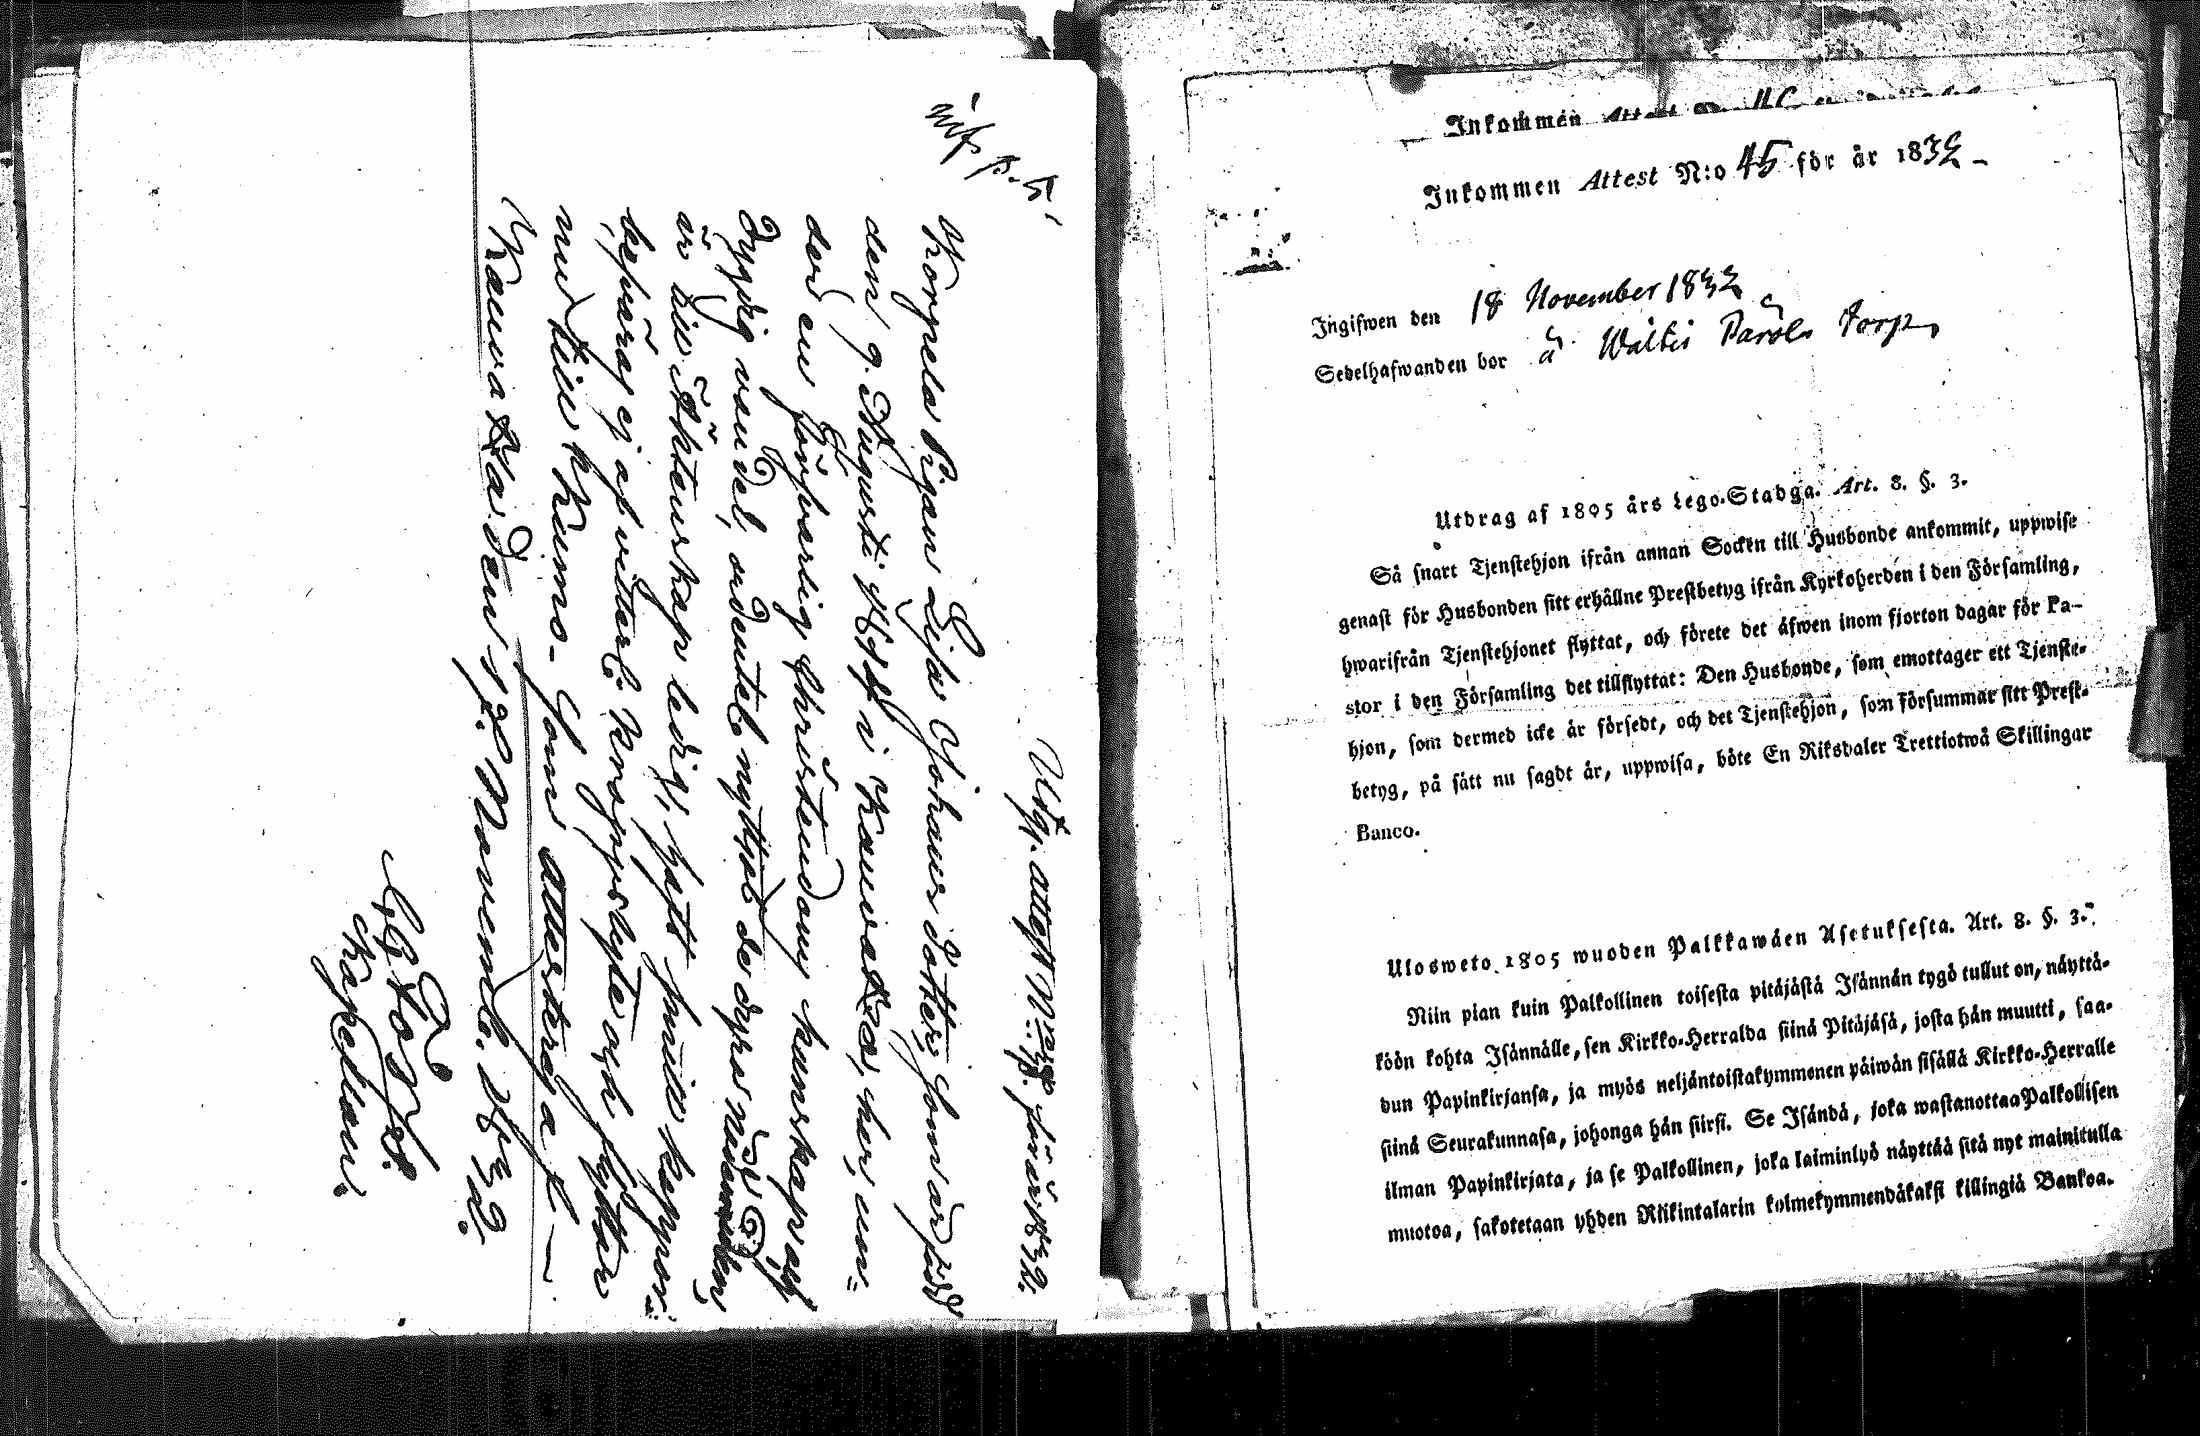 Utg. attest N:o 28 för år 1832.
inf p. 5.
Korpela Pigan Lisa Johans dotter, som är född
den 9. Augusti 1814 i Kauvatsa, har, un-
der en försvarlig Christendoms kunskap och
dygdig vandel, ordentel. nyttjat de dyra nådemedlen,
är till Äktenskap ledig, haft
besvärad ej af vitterl. kroppslyte och flyttar
nu till Kumo. Som attesteras —
Kauvatsa den 17. Novemb. 1832.
Kapellan.
Inkommen Attest
Inkommen Attest N:o 45 för år 1832 -
Ingifwen den 18 November 1832
Sedelhafwanden bor å Torp
Utdrag af 1805 års Lego-Stadga. Art. 8. §. 3.
Så snart Tjenstehjon ifrån annan Socken till Husbonde ankommit, uppwise
genast för Husbonden sitt erhållne Prestbetyg ifrån Kyrkoherden i den Församling,
hwarifrån Tjenstehjonet flyttat, och förete det äfwen inom fjorton dagar för Pa-
stor i den Församling det tillflyttat: Den Husbonde, som emottager ett Tjenste-
hjon, som dermed icke är försedt, och det Tjenstehjon, som försummar sitt Prest-
betyg, på sätt nu sagdt är, uppwisa, böte En Riksdaler Trettiotwå Skillingar
Banco.
Ulosweto 1805 wuoden Palkkawäen Asetuksesta. Art. 8. §. 3.
Niin pian kuin Palkollinen toisesta pitäjästä Isännän tygö tullut on, näyttä-
köön kohta Isännälle, sen Kirkko-Herralda siinä Pitäjäsä, josta hän muutti, saa-
dun Papinkirjansa, ja myös neljäntoistakymmenen päiwän sisällä Kirkko-Herralle
siinä Seurakunnasa, johonga hän siirsi. Se Isändä, joka wastanottaa Palkollisen
ilman Papinkirjata, ja se Palkollinen, joka laiminlyö näyttää sitä nyt mainitulla
muotoa, sakotetaan yhden Riikintalarin kolmekymmendäkaksi killingiä Bankoa.